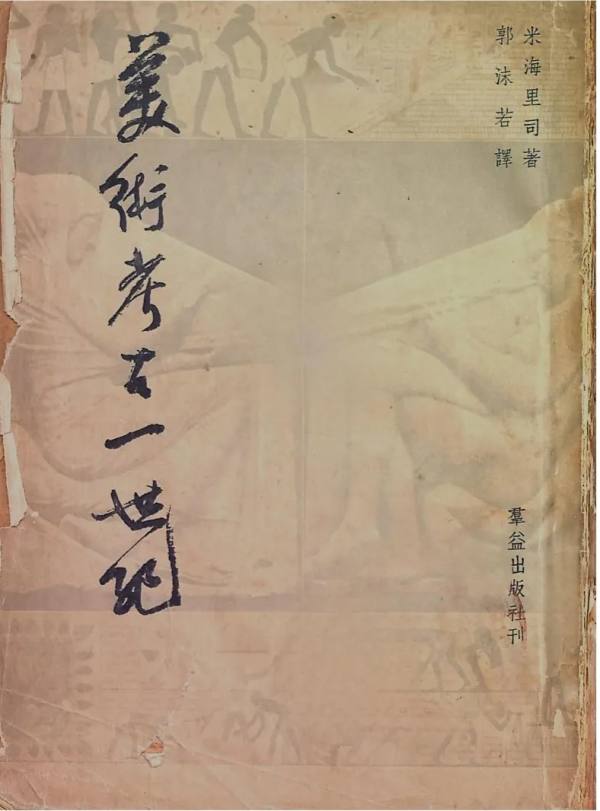 米海里司著
郭沫若譯
美術考古一世紀
羣益出版社刊